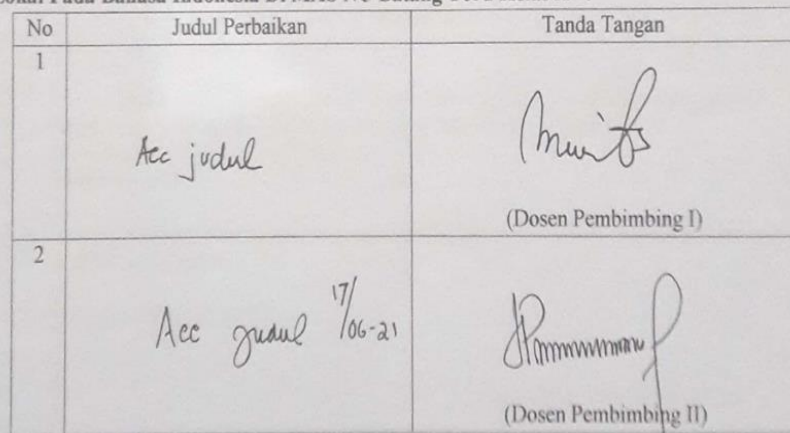 Pada Bahasa Indonesia Di
No Judul Perbaikan Tanda Tangan
1
Acc judul
(Dosen Pembimbing I)
2
Acc judul 17/06-21
(Dosen Pembimbing II)